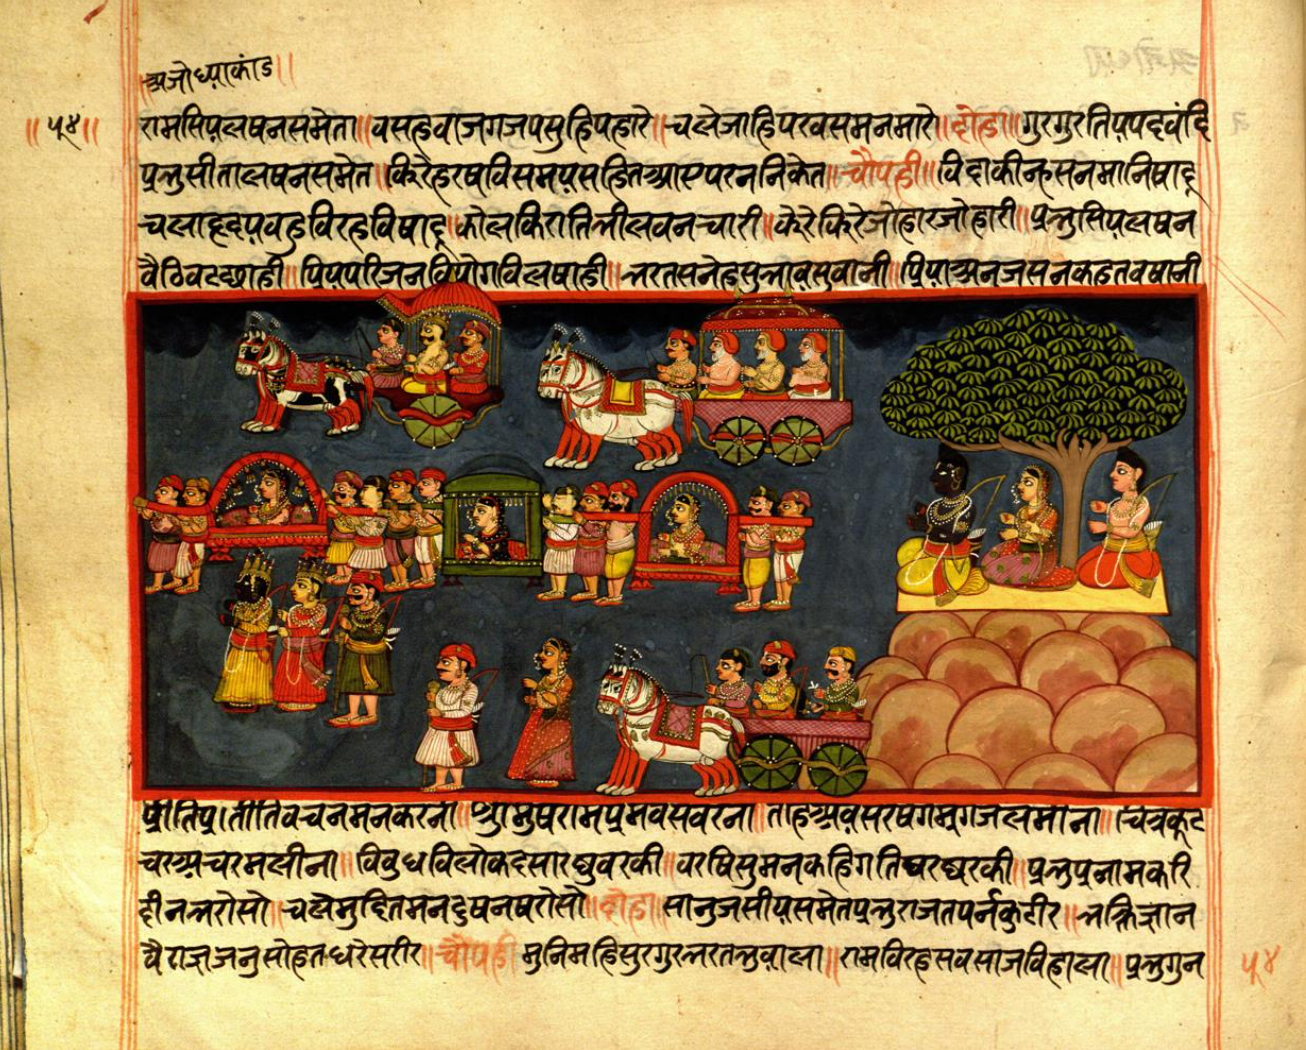 अजोध्याकांड॥
॥५४॥
रामसिय़लषनसमेता॥वसहवाजगजपसुहियहारे॥चलेजाहिपरवसमनमारे॥दोहा॥गुरगुरतिय़पदवंदि
प्रभुसीतालषनसमेत॥फिरेहरषविसमय़सहितआएपरननिकेत॥चौपही॥विदाकीन्हसनमानिषादू
चलाहृदय़वडविरहविषादू॥कोलकिरातभीलवनचारी॥फेरेफिरेजोहारजोहारी॥प्रभुसिय़लषन
वैठिवटछाही॥प्रिय़परिजनवियोगविलषाही॥भरतसनेहसुभाव़सुवानी॥प्रिय़ाअनजसनकहतवषानी
प्रीतिप्रतीतिवचनमनकरनी॥श्रीमुषरामप्रेमवसवरनी॥ताहिअव़सरषगमृगजलमीना॥चित्रकूट
चरअचरमलीना॥विवुधविलोकदसारघुवरकी॥वरषिसुमनकहिगतिघरघरकी॥प्रभुप्रनामकरि
दीनभरोसो॥चलेमुदितमनदुषनषरोसो॥दोहा॥सानुजसीय़समेतप्रभुराजतपर्नकुटीर॥भक्तिज्ञान
वैराज्ञजनुसोहतधरेसरीर॥चौपही॥मुनिमहिसुरगुरभरतभुव़ाला॥रामविरहसवसाजविहाला॥प्रभुगुन
५४